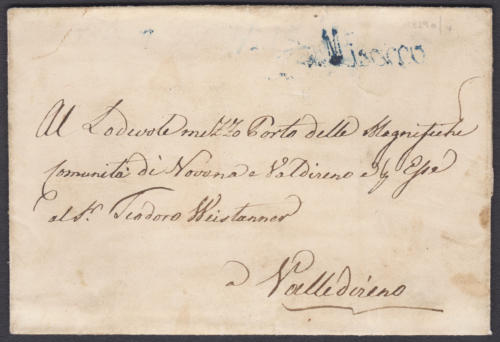 Misocco
Al Lodevole mezzo Porto delle Magnifiche
Comunità di Novena e Valdireno e p Esse
al Sr. Teodoro Weistanner
a Valledireno